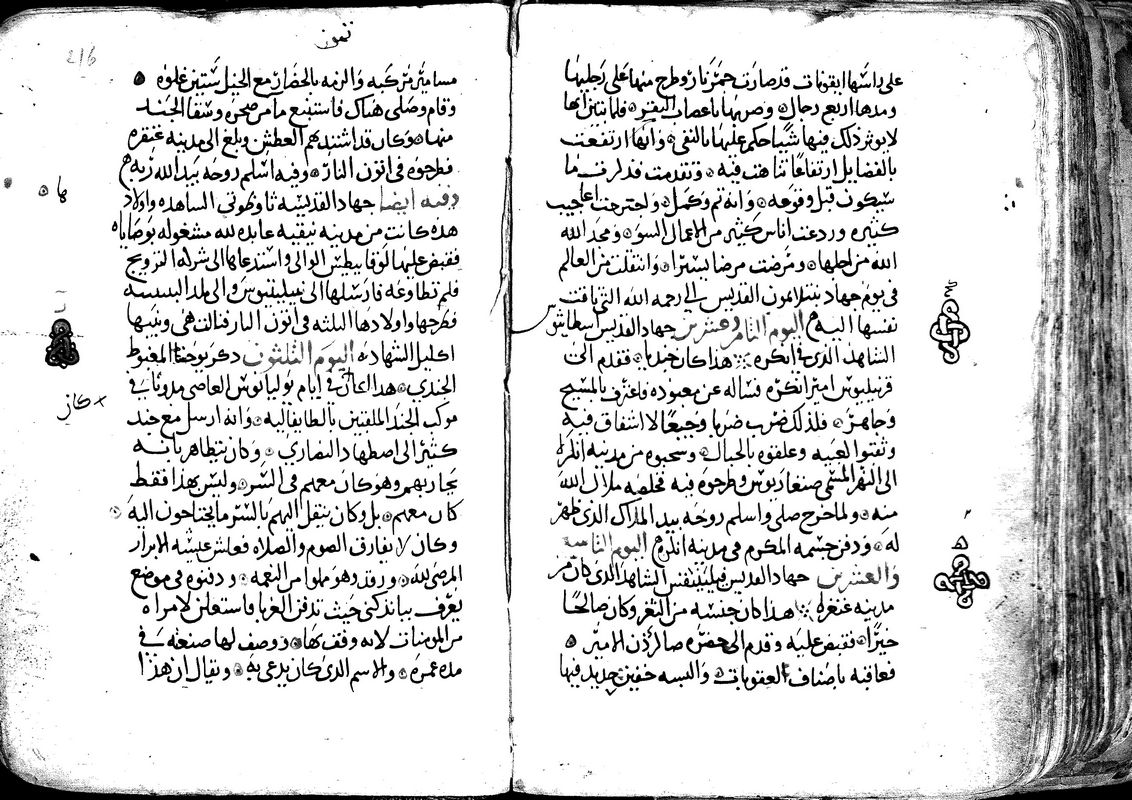 على راسها ايقونات قد صارت حمر نار وطرح منها على رجليها
ومدها اربع رجال وضربها باعصاب البقر فلما بتيرانها
لا يوثر ذلك فيها شيا حكم عليها بالنفي وانها ارتفعت
بالفضايل ارتفاعا تناهت فيه وتقدمت فذكرت ما
سيكون قبل وقوعه وانه تم وكمل واجترحت اعاجيب
كثيره وردعت اناس كثير من الاعمال السوء ومجد الله
الله من اجلها ومرضت مرضا يسيرا وانتقلت من العالم
في يوم جهاد بنتلامون القديس الى رحمه الله التي تاقت
نفسها اليه اليوم الثامن وعشرين جهاد القديس اسطاتيس
الشاهد الذي في انكره هذا كان جنديا فقدم الى
قرنيليوس امير انكره فساله عن معبوده فاعترف بالمسيح
وجاهر فلذلك ضرب ضربا وجيعا لا اشفاق فيه
وثقبوا كعبيه وعلقوه بالحبال وسحبوه من مدينه انكره
الى النهر المسمى صنغاريوس وطرحوه فيه فخلصه ملاك الله
منه ولما خرج صلى واسلم روحه بيد الملاك الذي ظهر
له ودفن جسمه المكرم في مدينه انكره اليوم التاسع
والعشرين جهاد القديس قيلينيقس الشاهد الذي كان من
مدينه غنغره هذا كان جنسه من الثغر وكان صالحا
خيرا فقبض عليه وقدم الى حضره صاكردن الامير
فعاقبه باصناف العقوبات والبسه خفين حديد فيها
تموز
216
مسامير مركبه والزمه بالحضار مع الخيل ستين غلوه
وقام وصلى هناك فاستنبع ما من صخره وشفا الجند
منها وكان قد اشتد بهم العطش وبلغ الى مدينه غنغره
فطرحوه في اتون النار وفيه اسلم روحه بيد الله ربه
وفيه ايضا جهاد القديسه ثاوضوتي الشاهده واولاد
هذه كانت من مدينه نيقيه عابده لله مشغوله بوصاياه
فقبض عليها لوقابيطيس الوالي واستدعاها الى شركه التزويج
فلم تطاوعه فارسلها الى نيقيتيوس والي بلد البيسسه
فطرحها واولادها الثلثه في اتون النار فنالت هي وبنيها
اكليل الشهاده اليوم الثلثون ذكر يوحنا المغبوط
الجندي هذا كان في ايام يوليانوس العاصي مدونا في
موكب الجند الملقبين بالطايفاليه وانه ارسل مع جند
كثير الى اضطهاد النصاري وكان يتظاهر بانه
يحاربهم وهو كان معهم في السر وليس بهذا فقط
كان معهم بل وكان ينقل اليهم بالسر ما يحتاجون اليه
وكان لا يفارق الصوم والصلاه فعاش عيشه الابرار
المرضي لله ورقد وهو مملوا من النعمه ودفنوه في موضع
يعرف بياندكتي حيث تدفن الغربا فاستعلن لامراه
من المومنات لانه وقف بها ووصف لها صنعته في
مده عمره والاسم الذي كان يدعى به ويقال ان هذا